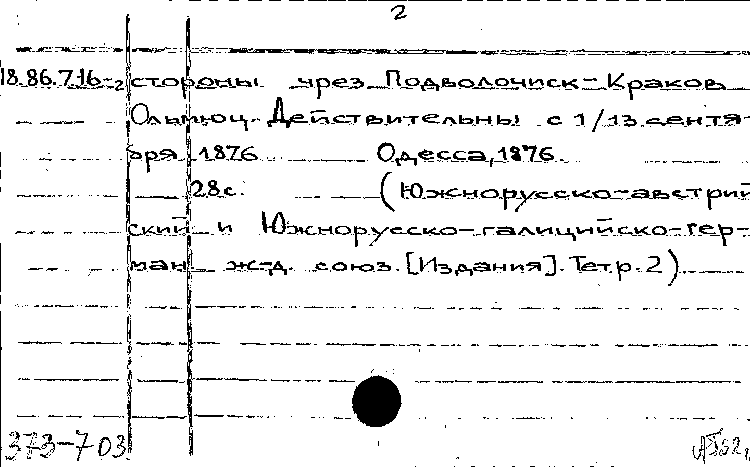 2
18.86.7.16-2 стороны чрез Подволочиск-Краков
Ольмюц. Действительны с 1/13 сентя-
бря 1876 Одесса, 1876.
28 с. (Южнорусско-австрий
ский и Южнорусско-галицийско-гер-
ман ж-д. союз. [Издания]. Тетр. 2)
373-703